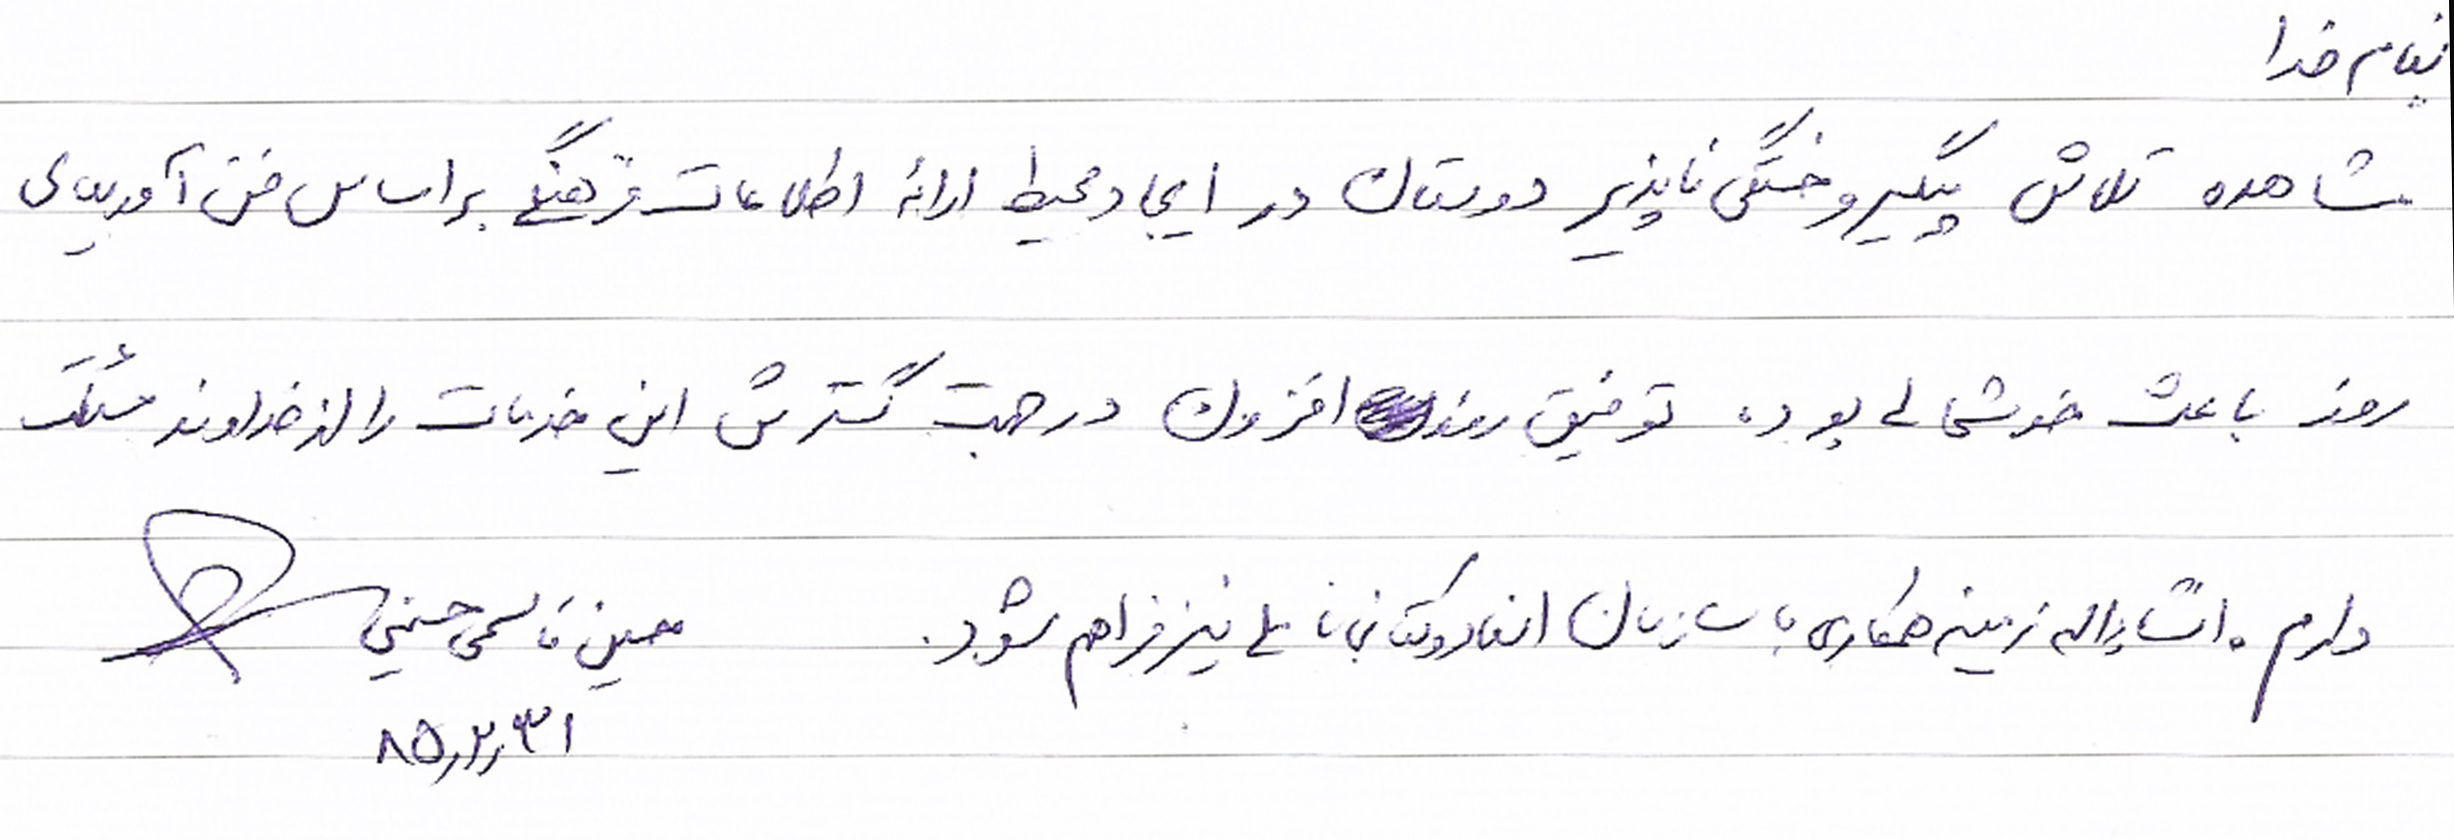 بنام خدا
مشاهده تلاش پیگیر و خستگی ناپذیر دوستان در ایجاد محیط ارائهٔ اطلاعات فرهنگی بر اساس فن آوریهای
روز باعث خوشحالی بود. توفیق روز افزون در جهت گسترش این خدمات را از خداوند مسئلت
دارم. انشاءاله زمینه همکاری با سازمان اسناد و کتابخانه ملی نیز فراهم شود.
محسن قاسمی حسینی
۸۵٫۲٫۳۱